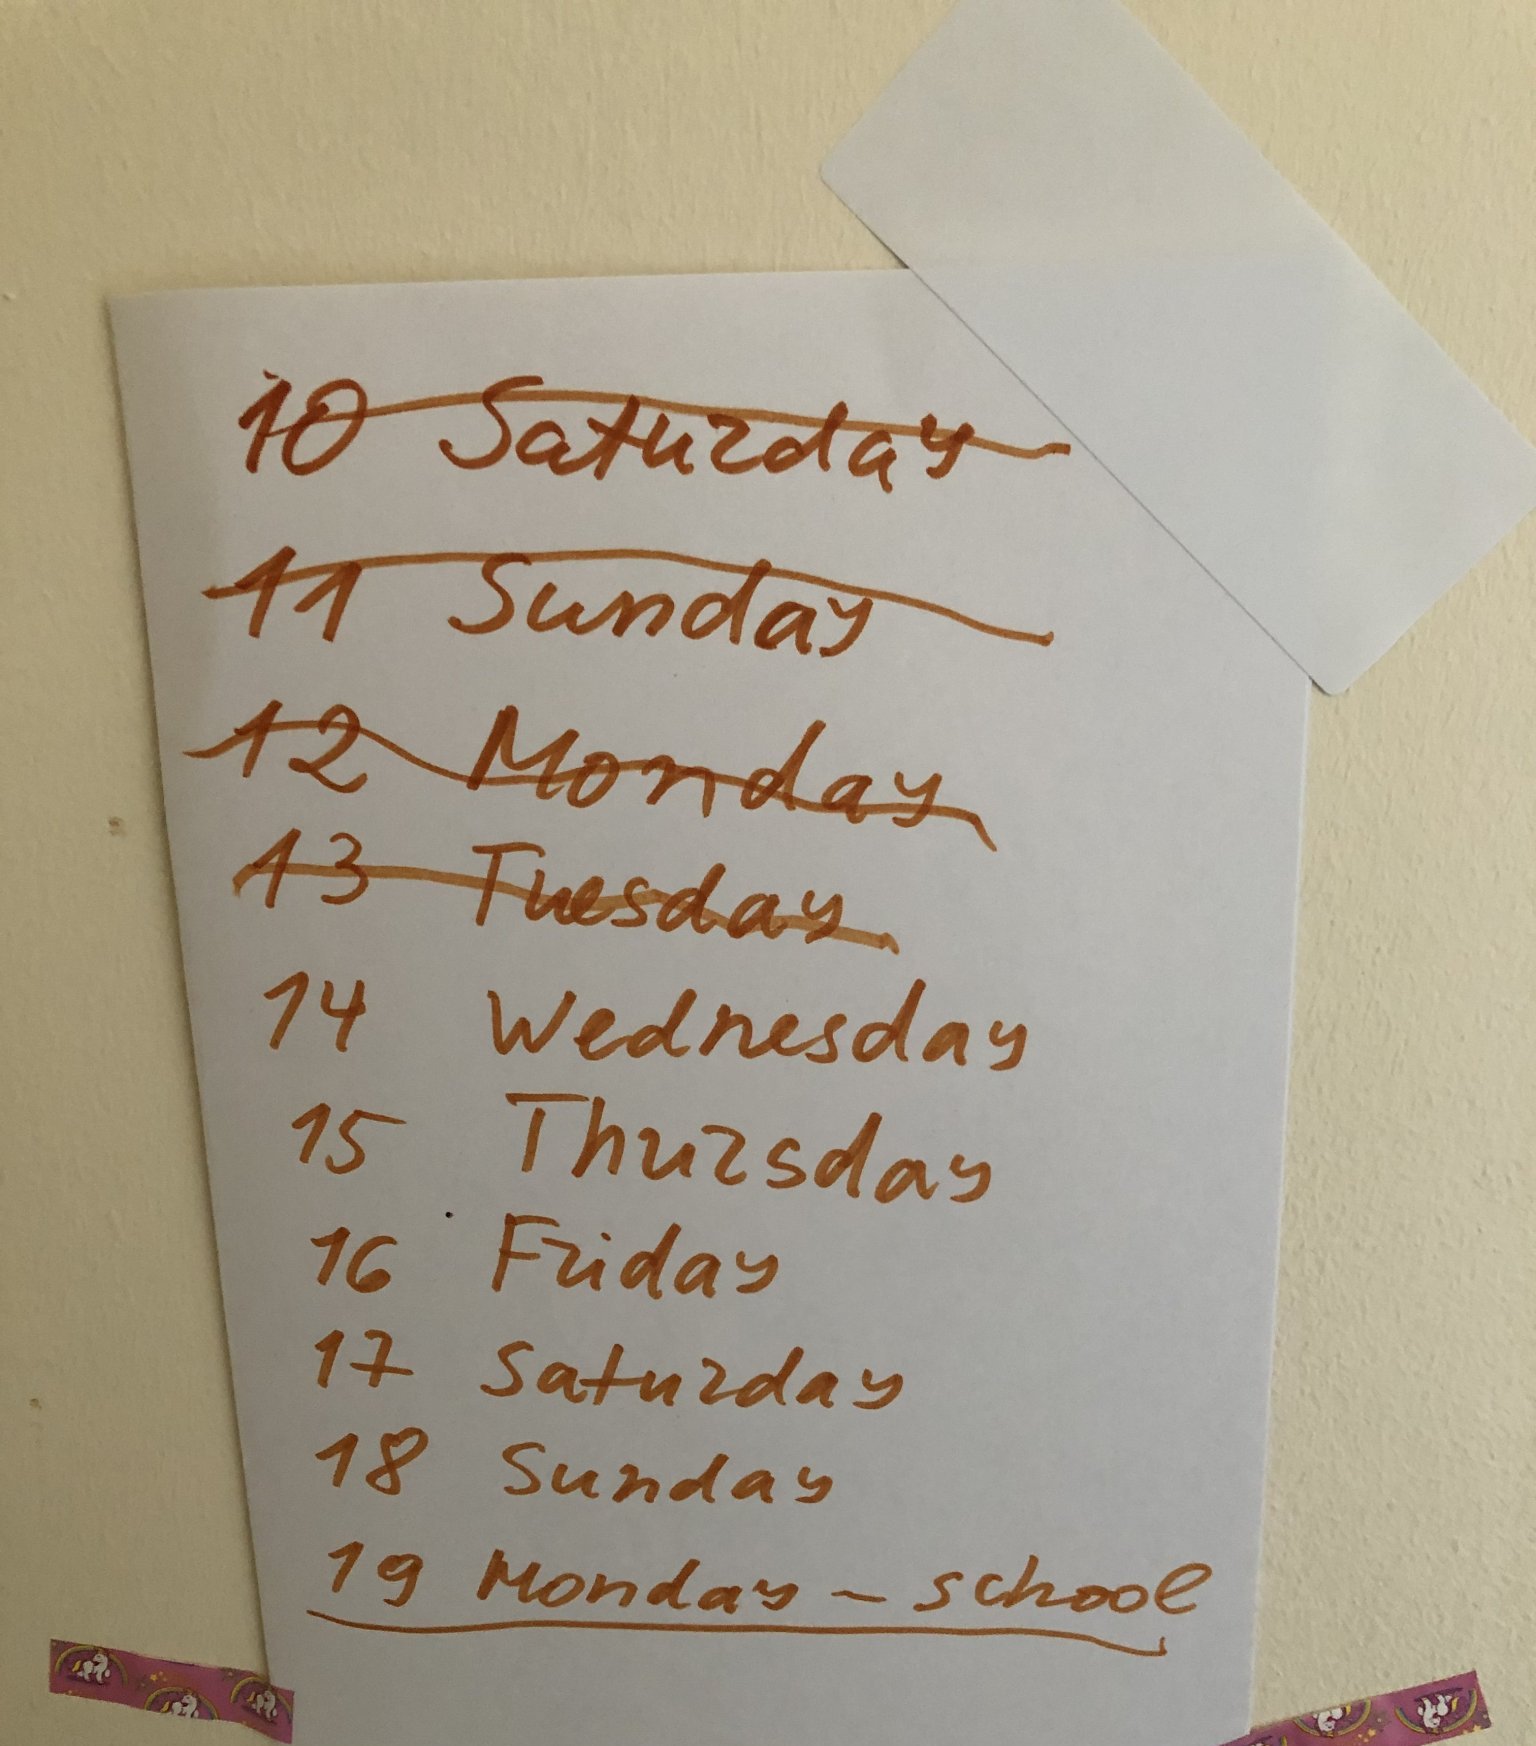 10 Saturday
11 Sunday
12 Monday
13 Tuesday
14 Wednesday
15 Thursday
16 Friday
17 Saturday
18 Sunday
19 Monday - school